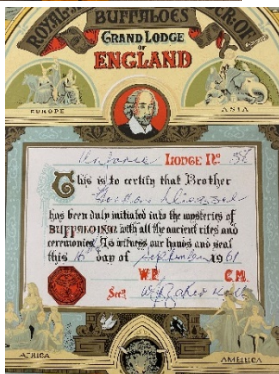 ROYAL
BUFFALOES
GRAND LODGE
OF
ENGLAND
EUROPE
ASIA
LODGE No.
This is to certify that Brother
has been duly initiated into the mysteries of
BUFFALOISM with all the ancient rites and
ceremonies. To witness our hands and seal
this 16 day of September 1961
W.P. C.M.
Sec.
AFRICA
AMERICA